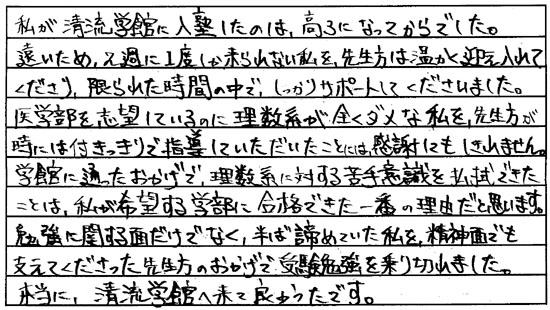 私が清流学館に入塾したのは、高3になってからでした。
遠いため、2週に1度しか来られない私を、先生方は温かく迎え入れて
くださり、限られた時間の中で、しっかりサポートしてくださいました。
医学部を志望しているのに理数系が全くダメな私を、先生方が
時には付きっきりで指導していただいたことには、感謝してもしきれません。
学館に通ったおかげで、理数系に対する苦手意識を払拭できた
ことは、私が希望する学部に合格できた一番の理由だと思います。
勉強に関する面だけでなく、半ば諦めていた私を、精神面でも
支えてくださった先生方のおかげで受験勉強を乗り切れました。
本当に、清流学館へ来て良かったです。